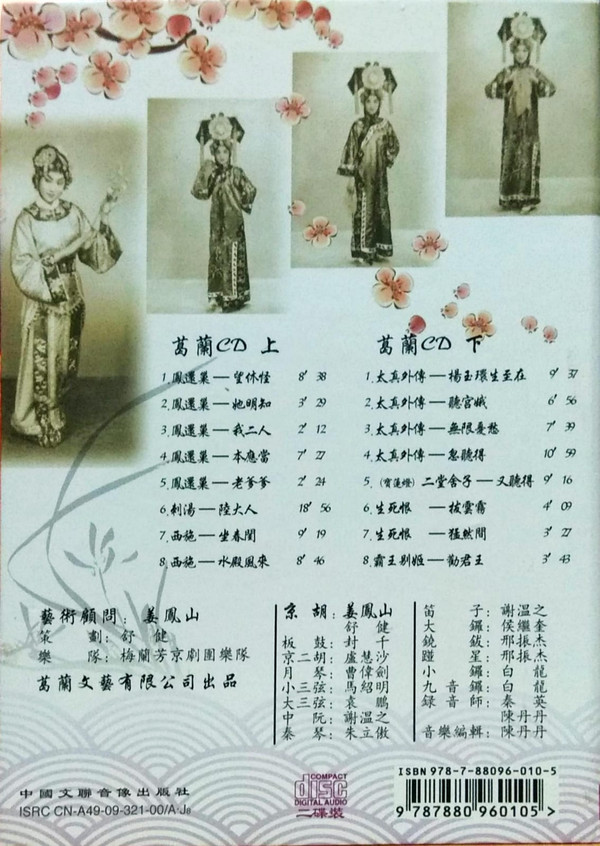 葛蘭CD 上
1.鳳還巢—望休怪 8' 38
2.鳳還巢—她明知 3' 29
3.鳳還巢—我二人 2' 12
4.鳳還巢—本應當 7' 27
5.鳳還巢—老爹爹 2' 24
6.刺湯—陸大人 18' 56
7.西施—坐春閨 9' 19
8.西施—水殿風來 8' 46
葛蘭CD 下
1.太真外傳—楊玉環生至在 9' 37
2.太真外傳—聽宮娥 6' 56
3.太真外傳—無限憂愁 7' 39
4.太真外傳—忽聽得 10' 59
5.(寶蓮燈)二堂舍子—又聽得 9' 16
6.生死恨—拔雲霧 4' 09
7.生死恨—猛然間 3' 27
8.霸王別姬—勸君王 3' 43
藝術顧問：姜鳳山
策劃：舒健
樂隊：梅蘭芳京劇團樂隊
葛蘭文藝有限公司出品
京胡：姜鳳山
舒健
板鼓：封千
京二胡：盧慧沙
月琴：曹偉劍
小三弦：馬紹明
大三弦：袁鵬
中阮：謝溫之
秦琴：朱立傲
笛子：謝溫之
大鑼：侯繼奎
鐃鈸：邢振杰
蹚星：邢振杰
小鑼：白龍
九音鑼：白龍
錄音師：秦英
陳丹丹
音樂編輯：陳丹丹
中國文聯音像出版社
ISRC CN-A49-09-321-00/A·J₈
COMPACT
disc
DIGITAL AUDIO
二碟裝
ISBN 978-7-88096-010-5
9 787880 960105 >